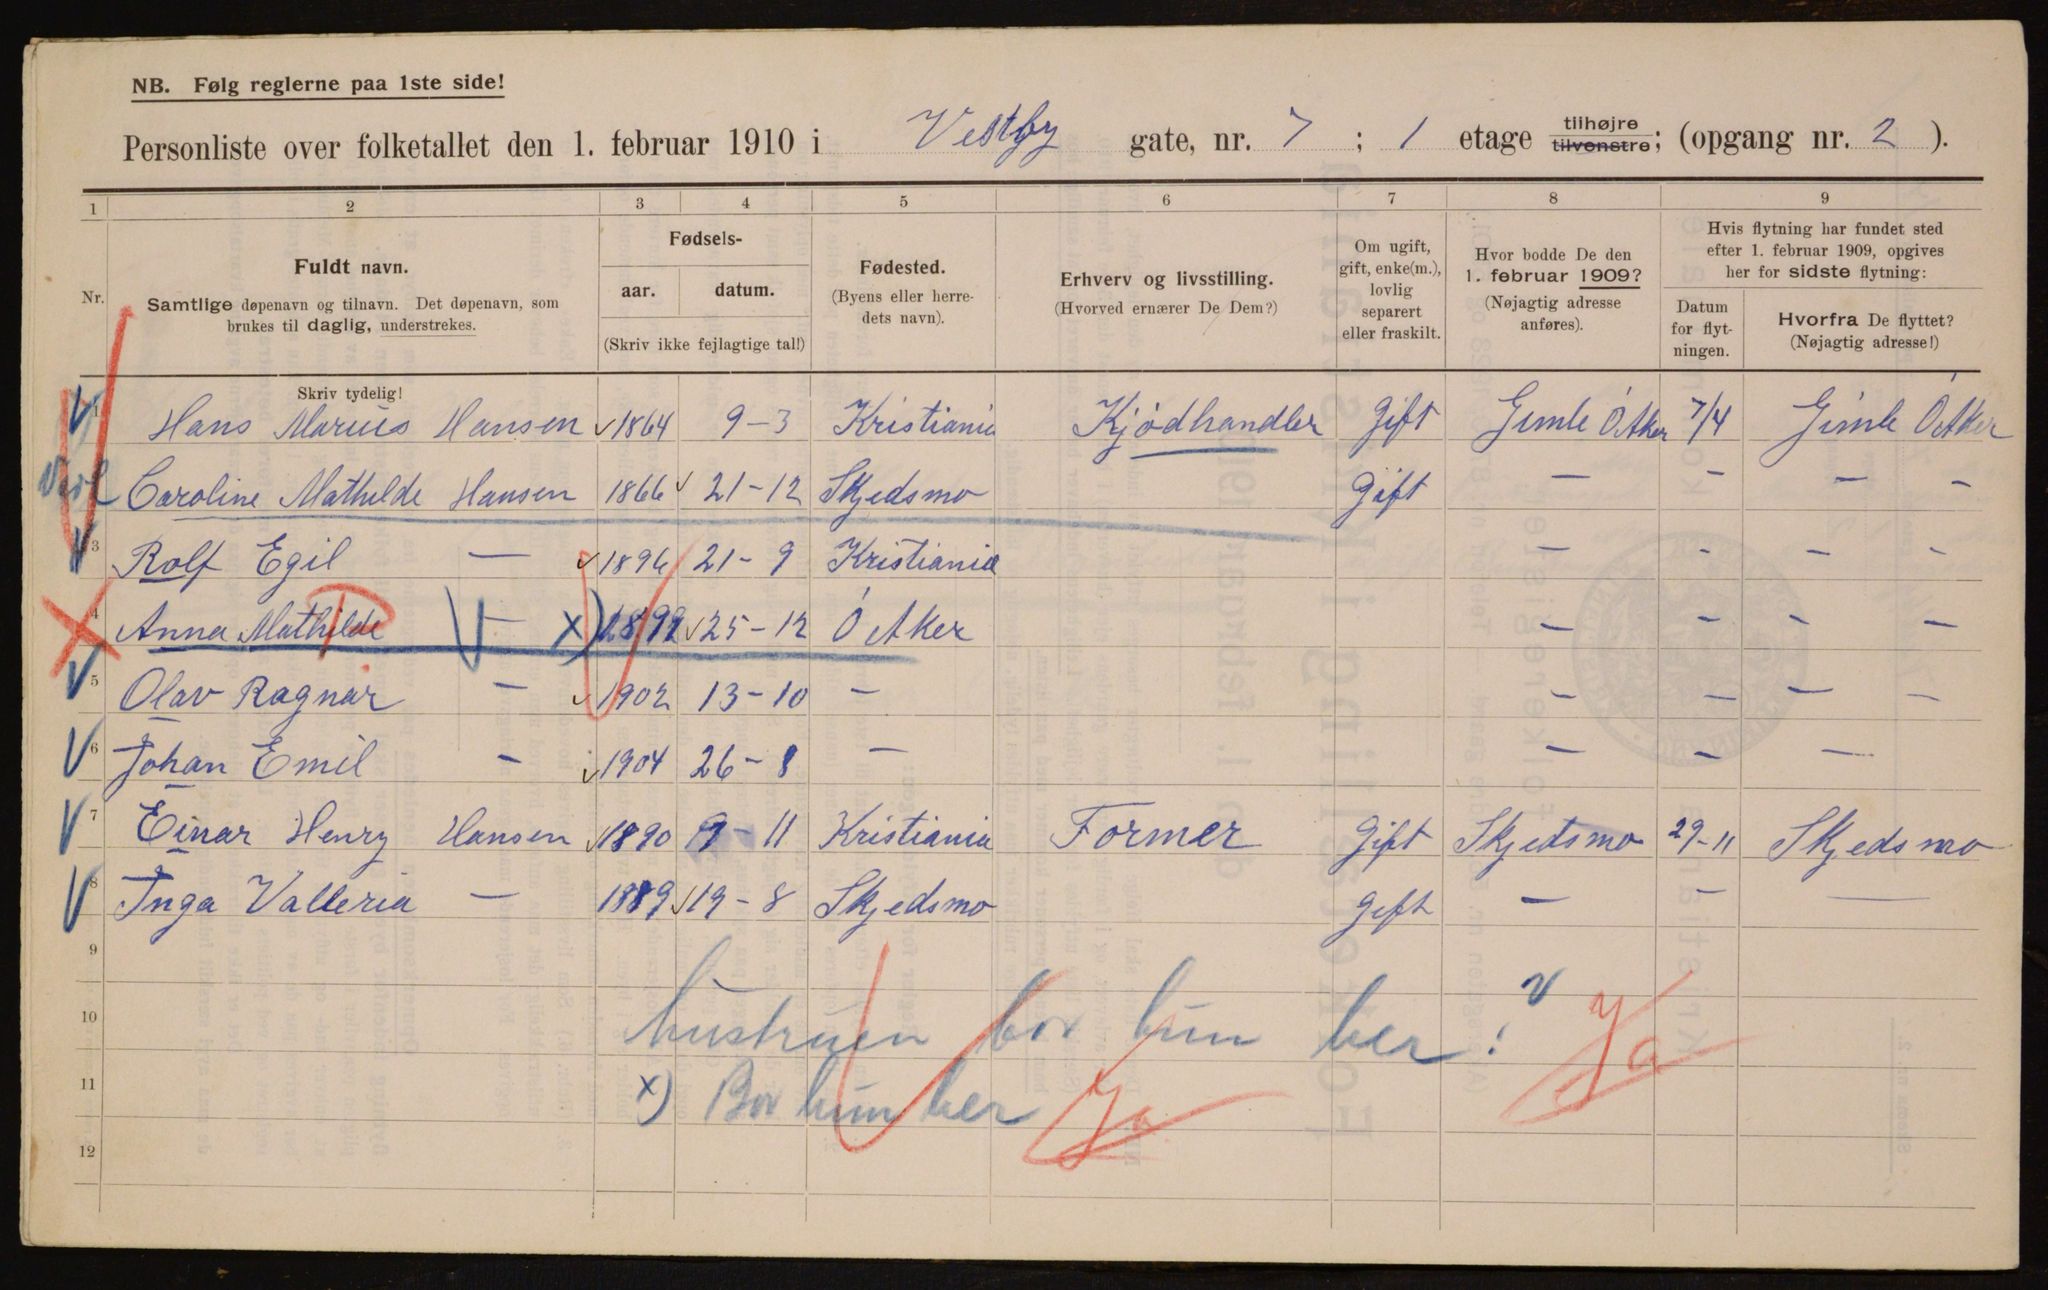 NB. Følg reglerne paa 1ste side!
Personliste over folketallet den 1. februar 1910 i Vestby gate, nr. 7 ; 1 etage tilhøjre tilvenstre; (opgang nr. 2 ).
1 2 3 4 5 6 7 8 9
Nr.
Fuldt navn.
Samtlige døpenavn og tilnavn. Det døpenavn, som
brukes til daglig, understrekes.
Skriv tydelig!
Fødsels-
aar. datum.
(Skriv ikke fejlagtige tal!)
Fødested.
(Byens eller herre-
dets navn).
Erhverv og livsstilling.
(Hvorved ernærer De Dem?)
Om ugift,
gift, enke(m.),
lovlig
separert
eller fraskilt.
Hvor bodde De den
1. februar 1909?
(Nøjagtig adresse
anføres).
Hvis flytning har fundet sted
efter 1. februar 1909, opgives
her for sidste flytning:
Datum
for flyt-
ningen.
Hvorfra De flyttet?
(Nøjagtig adresse!)
1 Hans Marius Hansen 1864 9-3 Kristiania Kjødhandler Gift Gimle Ö Aker 7/4 Gimle Ö Aker
Caroline Mathilde Hansen 1866 21-12 Skjedsmo Gift — - — -
3 Rolf Egil — 1896 21-9 Kristiania — - - -
4 Anna Mathilde — x) 1899 25-12 Ö Aker — - - -
5 Olav Ragnar — 1902 13-10 — — - - -
6 Johan Emil - 1904 26-8 — — - —
7 Einar Henry Hansen 1890 9-11 Kristiania Former Gift Skjedsmo 29-11 Skjedsmo
8 Inga Valleria — 1889 19-8 Skjedsmo Gift — - —
9
10 hustruen bor hun her? Ja
11 x) Bor hun her Ja
12